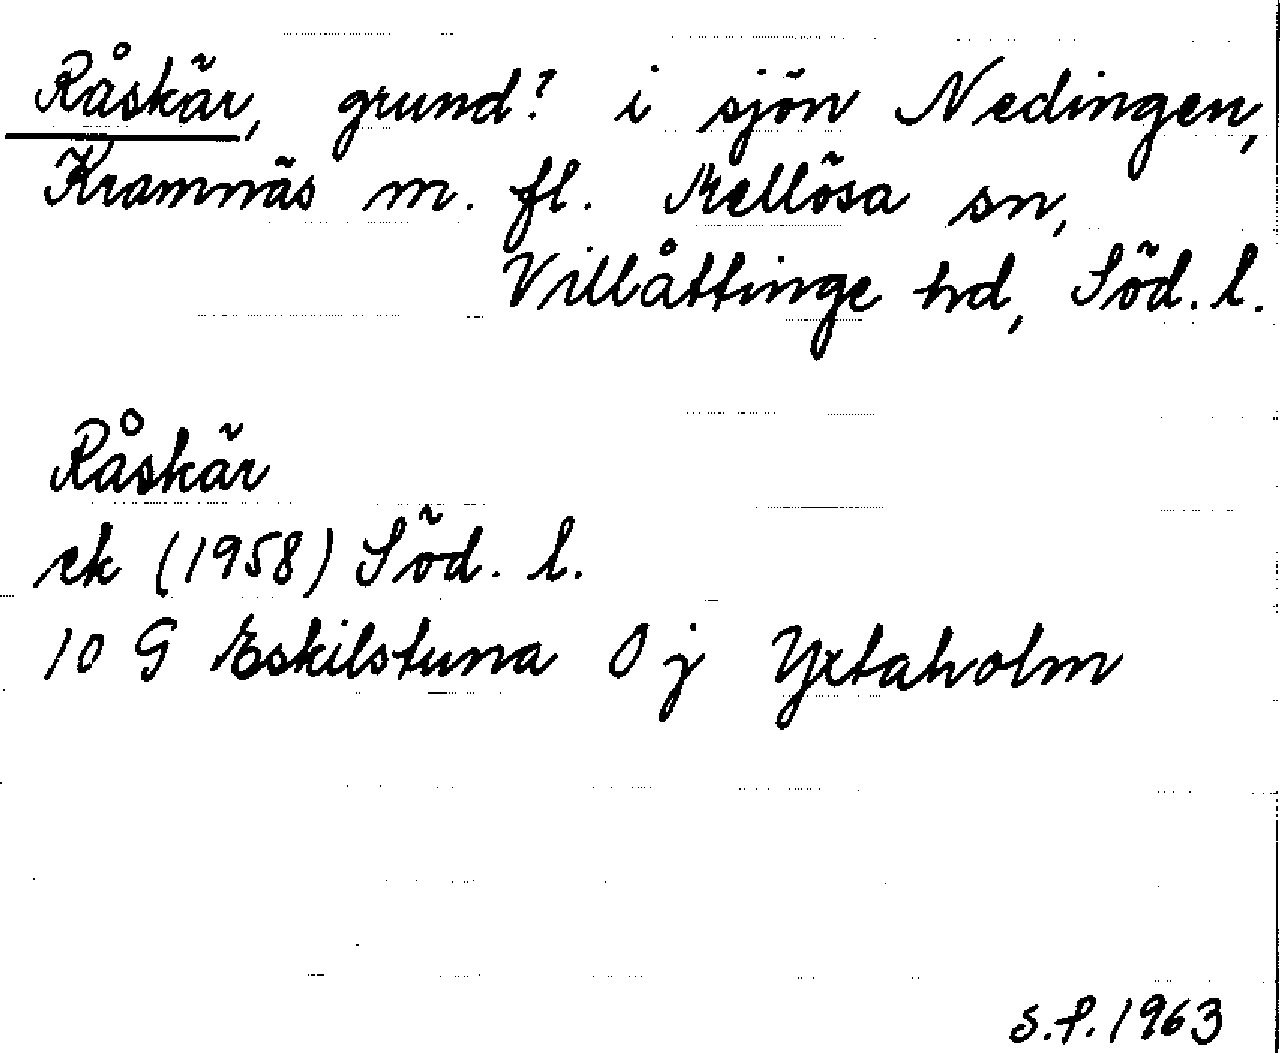 Råskär, grund? i sjön Nedingen,
Kramnäs m. fl. Mellösa sn,
Villåttinge hd, Söd. l.
Råskär
ek (1958) Söd. l.
10 G Eskilstuna 0 j Yxtaholm
S.F. 1963